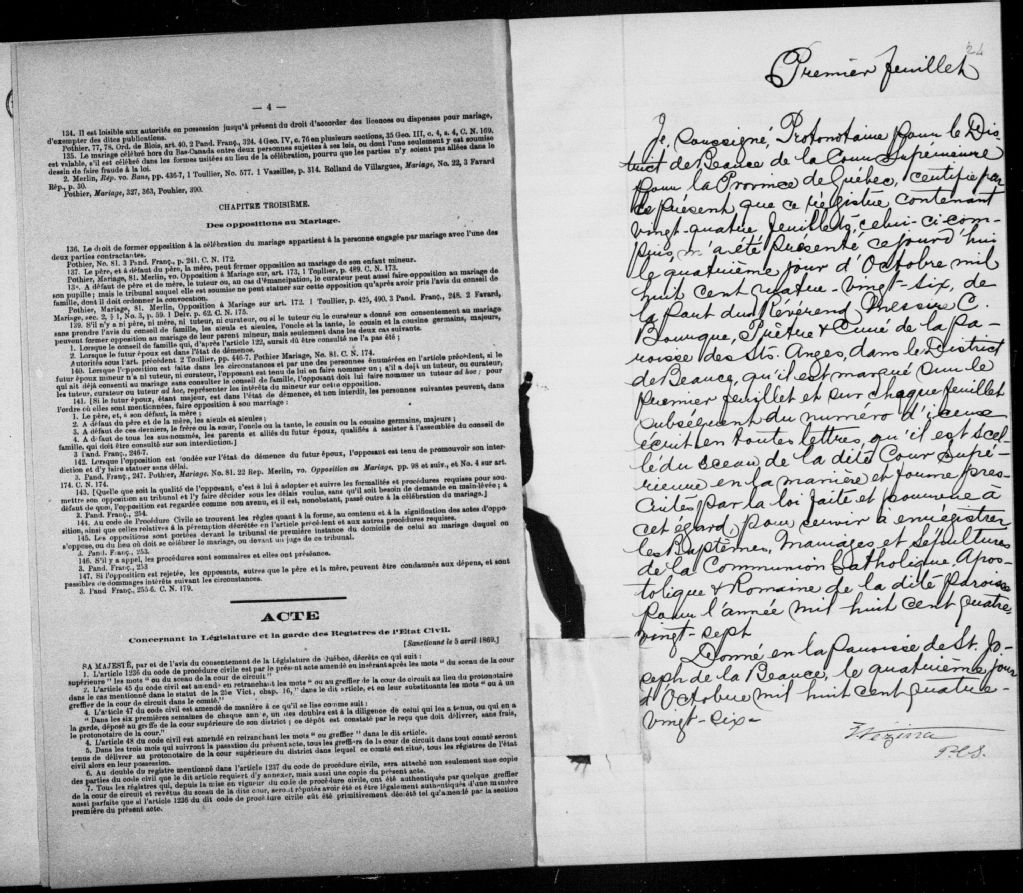 — 4 —
134. Il est loisible aux autorités en possession jusqu'à présent du droit d'accorder des licences ou dispenses pour mariage,
d'exempter des dites publications.
Pothier, 77, 78. Ord. de Blois, art. 40. 2 Pand. Franç., 324. 4 Geo. IV, c. 76 en plusieurs sections, 35 Geo. III, c. 4, s. 4, C. N. 169.
135. Le mariage célébré hors du Bas-Canada entre deux personnes sujettes à ses lois, ou dont l'une seulement y est soumise
est valable, s'il est célébré dans les formes usitées au lieu de la célébration, pourvu que les parties n'y soient pas allées dans le
dessin de faire fraude à la loi.
2. Merlin, Rép. vo. Bans, pp. 436-7, 1 Toullier, No. 577. 1 Vazeilles, p. 314. Rolland de Villargues, Mariage, No. 22, 3 Favard
Rép., p. 30.
Pothier, Mariage, 327, 363, Pouhier, 390.
CHAPITRE TROISIÈME.
Des oppositions au Mariage.
136. Le droit de former opposition à la célébration du mariage appartient à la personne engagée par mariage avec l'une des
deux parties contractantes.
Pothier, No. 81. 3 Pand. Franç., p. 241. C. N. 172.
137. Le père, et à défaut du père, la mère, peut former opposition au mariage de son enfant mineur.
Pothier, Mariage, 81. Merlin, vo. Opposition à Mariage sur art. 173, 1 Toullier, p. 489. C. N. 173.
138. A défaut de père et de mère, le tuteur ou, au cas d'émancipation, le curateur peut aussi faire opposition au mariage de
son pupille; mais le tribunal auquel elle est soumise ne peut statuer sur cette opposition qu'après avoir pris l'avis du conseil de
famille, dont il doit ordonner la convocation.
Pothier, Mariage, 81. Merlin, Opposition à Mariage sur art. 172. 1 Toullier, p. 425, 490, 3 Pand. Franç., 248. 2 Favard,
Mariage, sec. 2, § 1, No. 3, p. 59. 1 Delv. p. 62. C. N. 175.
139. S'il n'y a ni père, ni mère, ni tuteur, ni curateur, ou si le tuteur ou le curateur a donné son consentement au mariage
sans prendre l'avis du conseil de famille, les aïeuls et aïeules, l'oncle et la tante, le cousin et la cousine germains, majeurs,
peuvent former opposition au mariage de leur parent mineur, mais seulement dans les deux cas suivants.
1. Lorsque le conseil de famille qui, d'après l'article 122, aurait dû être consulté ne l'a pas été;
2. Lorsque le futur époux est dans l'état de démence.
Autorités sous l'art. précédent. 2 Toullier, pp. 446-7. Pothier Mariage, No. 81. C. N. 174.
140. Lorsque l'opposition est faite dans les circonstances et par une des personnes énumérées en l'article précédent, si le
futur époux mineur n'a ni tuteur, ni curateur, l'opposant est tenu de lui en faire nommer un; s'il a déjà un tuteur, ou curateur,
qui ait déjà consenti au mariage sans consulter le conseil de famille, l'opposant doit lui faire nommer un tuteur ad hoc; pour
les tuteur, curateur ou tuteur ad hoc, représenter les intérêts du mineur sur cette opposition.
141. [Si le futur époux, étant majeur, est dans l'état de démence, et non interdit, les personnes suivantes peuvent, dans
l'ordre où elles sont mentionnées, faire opposition à son mariage:
1. Le père, et, à son défaut, la mère;
2. A défaut du père et de la mère, les aïeuls et aïeules;
3. A défaut de ces derniers, le frère ou la sœur, l'oncle ou la tante, le cousin ou la cousine germains, majeurs;
4. A défaut de tous les sus-nommés, les parents et alliés du futur époux, qualifiés à assister à l'assemblée du conseil de
famille, qui doit être consulté sur son interdiction.]
3 Pand. Franç., 246-7.
142. Lorsque l'opposition est fondée sur l'état de démence du futur époux, l'opposant est tenu de promouvoir son inter-
diction et d'y faire statuer sans délai.
3. Pand. Franç., 247. Pothier, Mariage. No. 81. 22 Rep. Merlin, vo. Opposition au Mariage, pp. 98 et suiv., et No. 4 sur art.
174. C. N. 174.
143. [Quelle que soit la qualité de l'opposant, c'est à lui à adopter et suivre les formalités et procédures requises pour sou-
mettre son opposition au tribunal et l'y faire décider sous les délais voulus, sans qu'il soit besoin de demande en main-levée; à
défaut de quoi, l'opposition est regardée comme non avenu, et il est, nonobstant, passé outre à la célébration du mariage.]
3. Pand. Franç., 254.
144. Au code de Procédure Civile se trouvent les règles quant à la forme, au contenu et à la signification des actes d'oppo-
sition, ainsi que celles relatives à la péremption décrétée en l'article précédent et aux autres procédures requises.
145. Les oppositions sont portées devant le tribunal de première instance du domicile de celui au mariage duquel on
s'oppose, ou du lieu où doit se célébrer le mariage, ou devant un juge de ce tribunal.
3. Pand. Franç., 253.
146. S'il y a appel, les procédures sont sommaires et elles ont préséance.
3. Pand. Franç., 253
147. Si l'opposition est rejetée, les opposants, autres que le père et la mère, peuvent être condamnés aux dépens, et sont
passibles de dommages intérêts suivant les circonstances.
3. Pand Franç., 255-6. C. N. 179.
ACTE
Concernant la Législature et la garde des Registres de l'Etat Civil.
[Sanctionné le 5 avril 1869.]
SA MAJESTÉ, par et de l'avis du consentement de la Législature de Québec, décrète ce qui suit:
1. L'article 1236 du code de procédure civile est par le présent acte amendé en insérant après les mots "du sceau de la cour
supérieure" les mots "ou du sceau de la cour de circuit"
2. L'article 45 du code civil est amendé en retranchant les mots "ou au greffier de la cour de circuit au lieu du protonotaire
dans le cas mentionné dans le statut de la 25e Vict., chap. 16," dans le dit article, et en leur substituants les mots "ou à un
greffier de la cour de circuit dans le comté."
4. L'article 47 du code civil est amendé de manière à ce qu'il se lise comme suit:
"Dans les six premières semaines de chaque année, un des doubles est à la diligence de celui qui les a tenus, ou qui en a
la garde, déposé au greffe de la cour supérieure de son district; ce dépôt est constaté par le reçu que doit délivrer, sans frais,
le protonotaire de la cour."
4. L'article 48 du code civil est amendé en retranchant les mots "ou greffier" dans le dit article.
5. Dans les trois mois qui suivront la passation du présent acte, tous les greffiers de la cour de circuit dans tout comté seront
tenus de délivrer au protonotaire de la cour supérieure du district dans lequel ce comté est situé, tous les registres de l'état
civil alors en leur possession.
6. Au double du registre mentionné dans l'article 1237 du code de procédure civile, sera attaché non seulement une copie
des parties du code civil que le dit article requiert d'y annexer, mais aussi une copie du présent acte.
7. Tous les régistres qui, depuis la mise en vigueur du code de procédure civile, ont été authentiqués par quelque greffier
de la cour de circuit et revêtus du sceau de la dite cour, seront réputés avoir été et être légalement authentiqués d'une manière
aussi parfaite que si l'article 1236 du dit code de procédure civile eût été primitivement décrété tel qu'amendé par la section
première du présent acte.
24
Premier feuillet
Je, soussigné, Protonotaire pour le Dis-
trict de Beauce de la Cour Supérieure
pour la Province de Québec, certifie par
ce présent que ce régistre contenant
vingt-quatre feuillets, celui-ci com-
pris, m'a été présenté ce jourd'hui
le quatrième jour d'Octobre mil
huit cent quatre-vingt-six, de
la part du Révérend Messire C.
Bourque, Prêtre & Curé de la Pa-
roisse des Sts. Anges, dans le District
de Beauce, qu'il est marqué sur le
premier feuillet et sur chaque feuillet
subséquent du numéro d'iceux
écrit en toutes lettres, qu'il est scel-
lé du sceau de la dite Cour Supé-
rieure en la manière et forme pres-
crites par la loi faite et pourvue à
cet égard, pour servir à enrégistrer
les Baptêmes, Mariages et sépultures
de la Communion Catholique Apos-
tolique & Romaine de la dite paroisse
pour l'année mil huit cent quatre
vingt-sept
Donné en la Paroisse de St. Jo-
seph de la Beauce, le quatrième jour
d'Octobre mil huit cent quatre-
vingt-six=
Vézina
P.C.S.